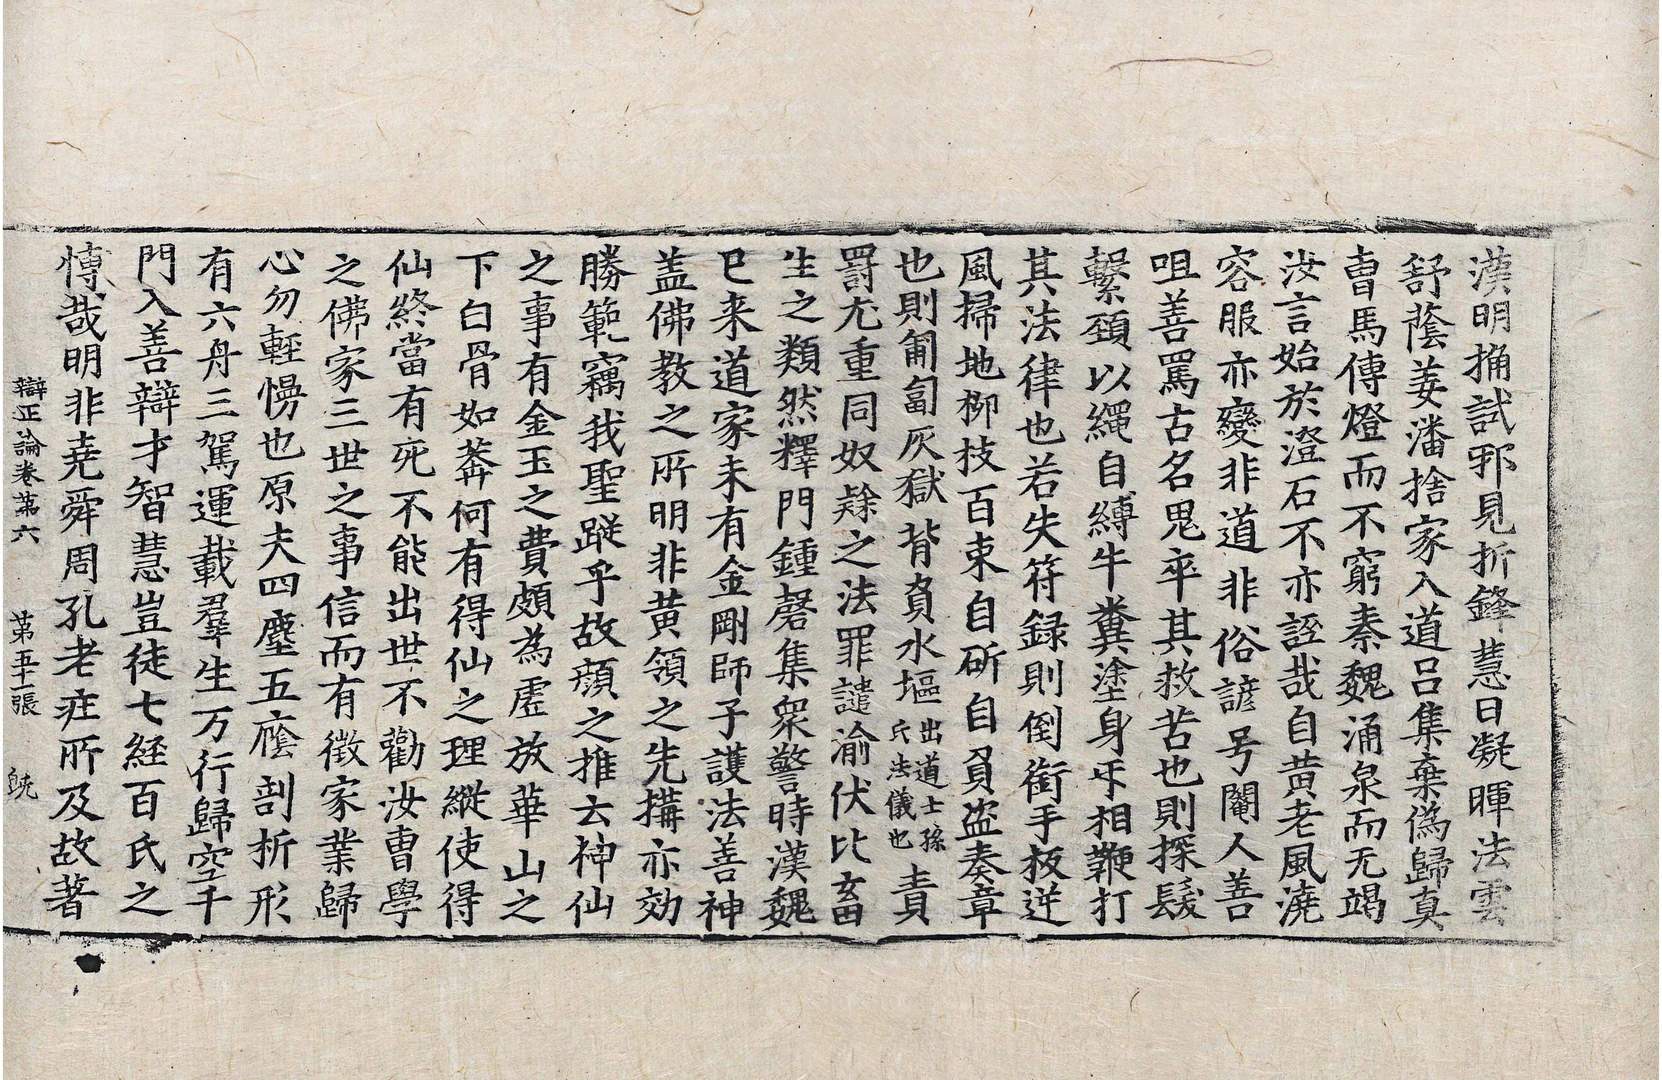 漢明捔試邪見折鋒慧日凝暉法雲
舒蔭姜潘捨家入道呂集棄僞歸真
曺馬傳燈而不窮秦魏涌泉而无竭
汝言始於澄石不亦誣哉自黃老風澆
容服亦變非道非俗諺号閹人善
咀善罵古名鬼卒其救苦也則探髮
繫頚以繩自縛牛糞塗身𭃨相鞭打
其法律也若失符録則倒銜手板逆
風掃地栁枝百束自斫自負盜奏章
也則匍匐灰獄背負水塸出道士孫氏法儀也責
罸尤重同奴𨽻之法罪譴渝伏比畜
生之類然釋門鍾磬集衆警時漢魏
已来道家未有金剛師子護法善神
盖佛教之所明非黃領之先搆亦効
勝範竊我聖蹤乎故顔之推云神仙
之事有金玉之費頗為虛放華山之
下白骨如莽何有得仙之理縱使得
仙終當有死不能出世不勸汝曺學
之佛家三世之事信而有徵家業歸
心勿輕慢也原夫四塵五廕剖折形
有六舟三駕運載羣生万行歸空千
門入善辯才智慧豈徒七経百氏之
愽哉明非堯舜周孔老莊所及故著
辯正論卷第六　第五十一張